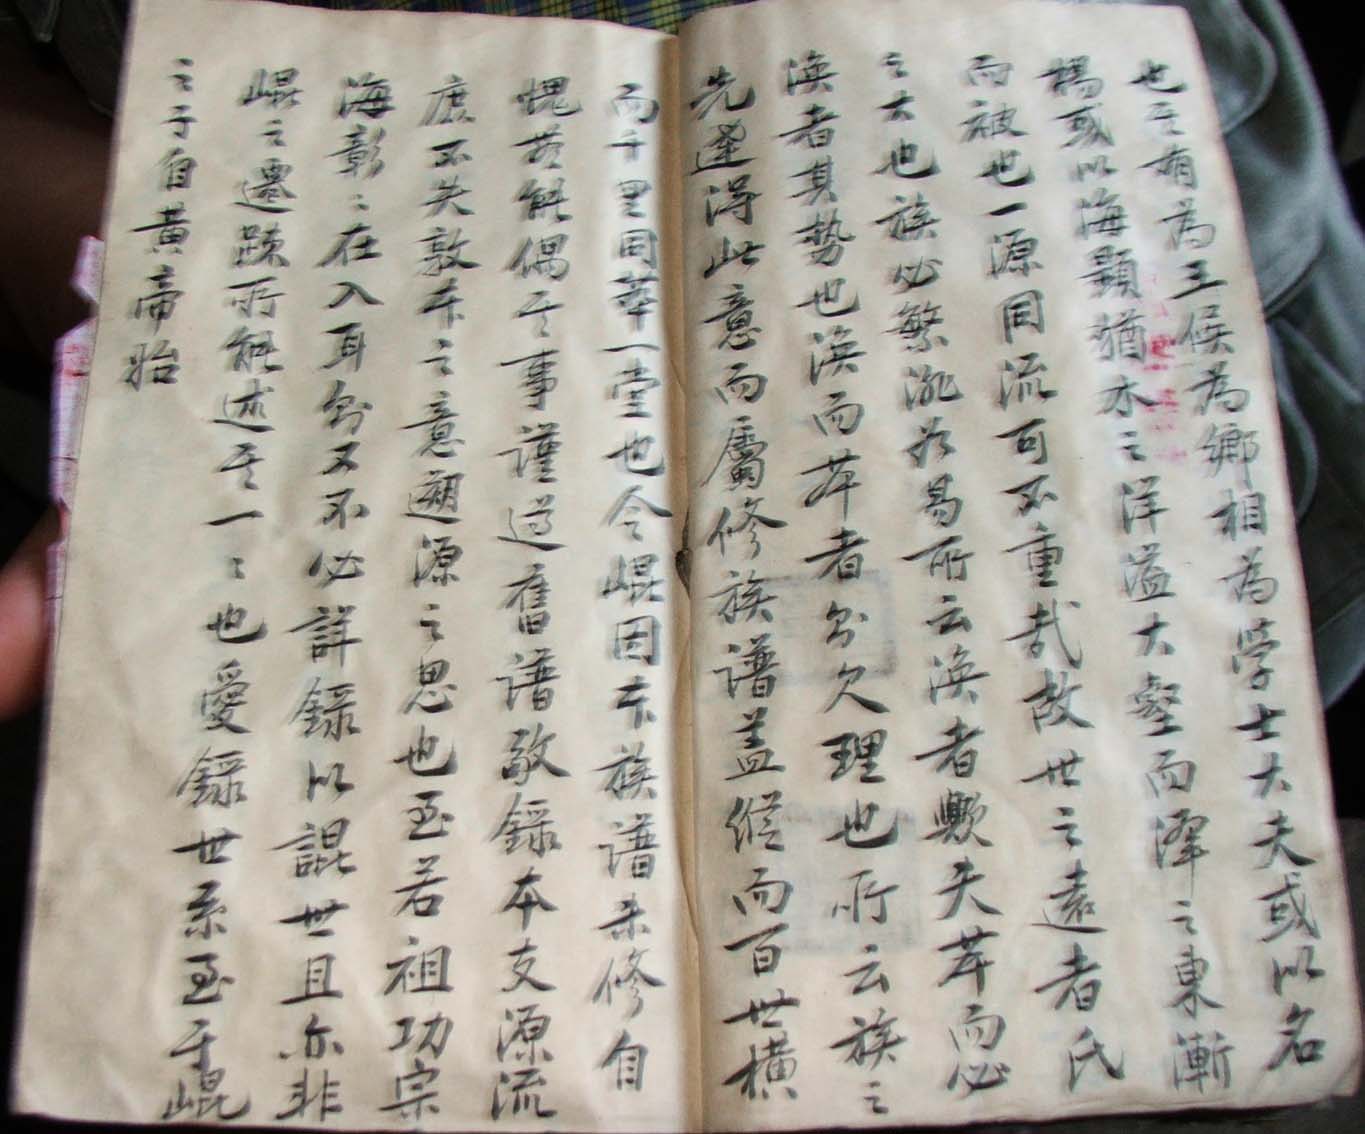 也其有為王侯為鄉相為学士大夫或以名
楊或以海顯猶水之洋溢大壑而澤之東漸
而被也一源同流可不重哉故世之遠者氏
之大也族必繁派於易所云渙者歟夫萃而必
渙者其勢也渙而萃者分欠理也所云族之
先達得此意而屬修族譜蓋縱而百世橫
而千里同萃一堂也今崐因本族譜未修自
愧無能偶其事謹遵舊譜敬錄本支源流
庶不失敦本之意遡源之思也至若祖功宗
海彰〻在入耳分又不必詳錄以諢世且亦非
崐之遷踈所能述其一〻也爰錄世系至于崐
之于自黃帝始